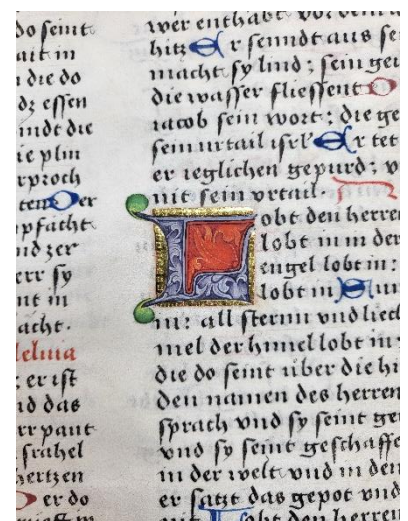 do seint
ait in
n die do
dz essen
indt die
ie plin
sproch
ten Der
pfacht
nd zer
err sy
nt in
acht.
leluia
er ist
d das
rr pant
srahel
hertzen
er do
wer enthabt vor dem
hitz Er senndt aus se
macht sy lind; sein gei
die wasser fliessent D
iacob sein wort; die ge
sein urtail isrl' Er tet
er ieglichen gepurd; v
nit sein vrtail.
Lobt den herren
lobt in in der
engel lobt in:
lobt in Sun
in: all sternn und liech
mel der himel lobt in:
die do seint über die hi
den namen des herren
sprach vnd sy seint ge
vnd sy seint geschaffe
in der welt vnd in den
er satzt das gepot vnd
nit Lobt den herren